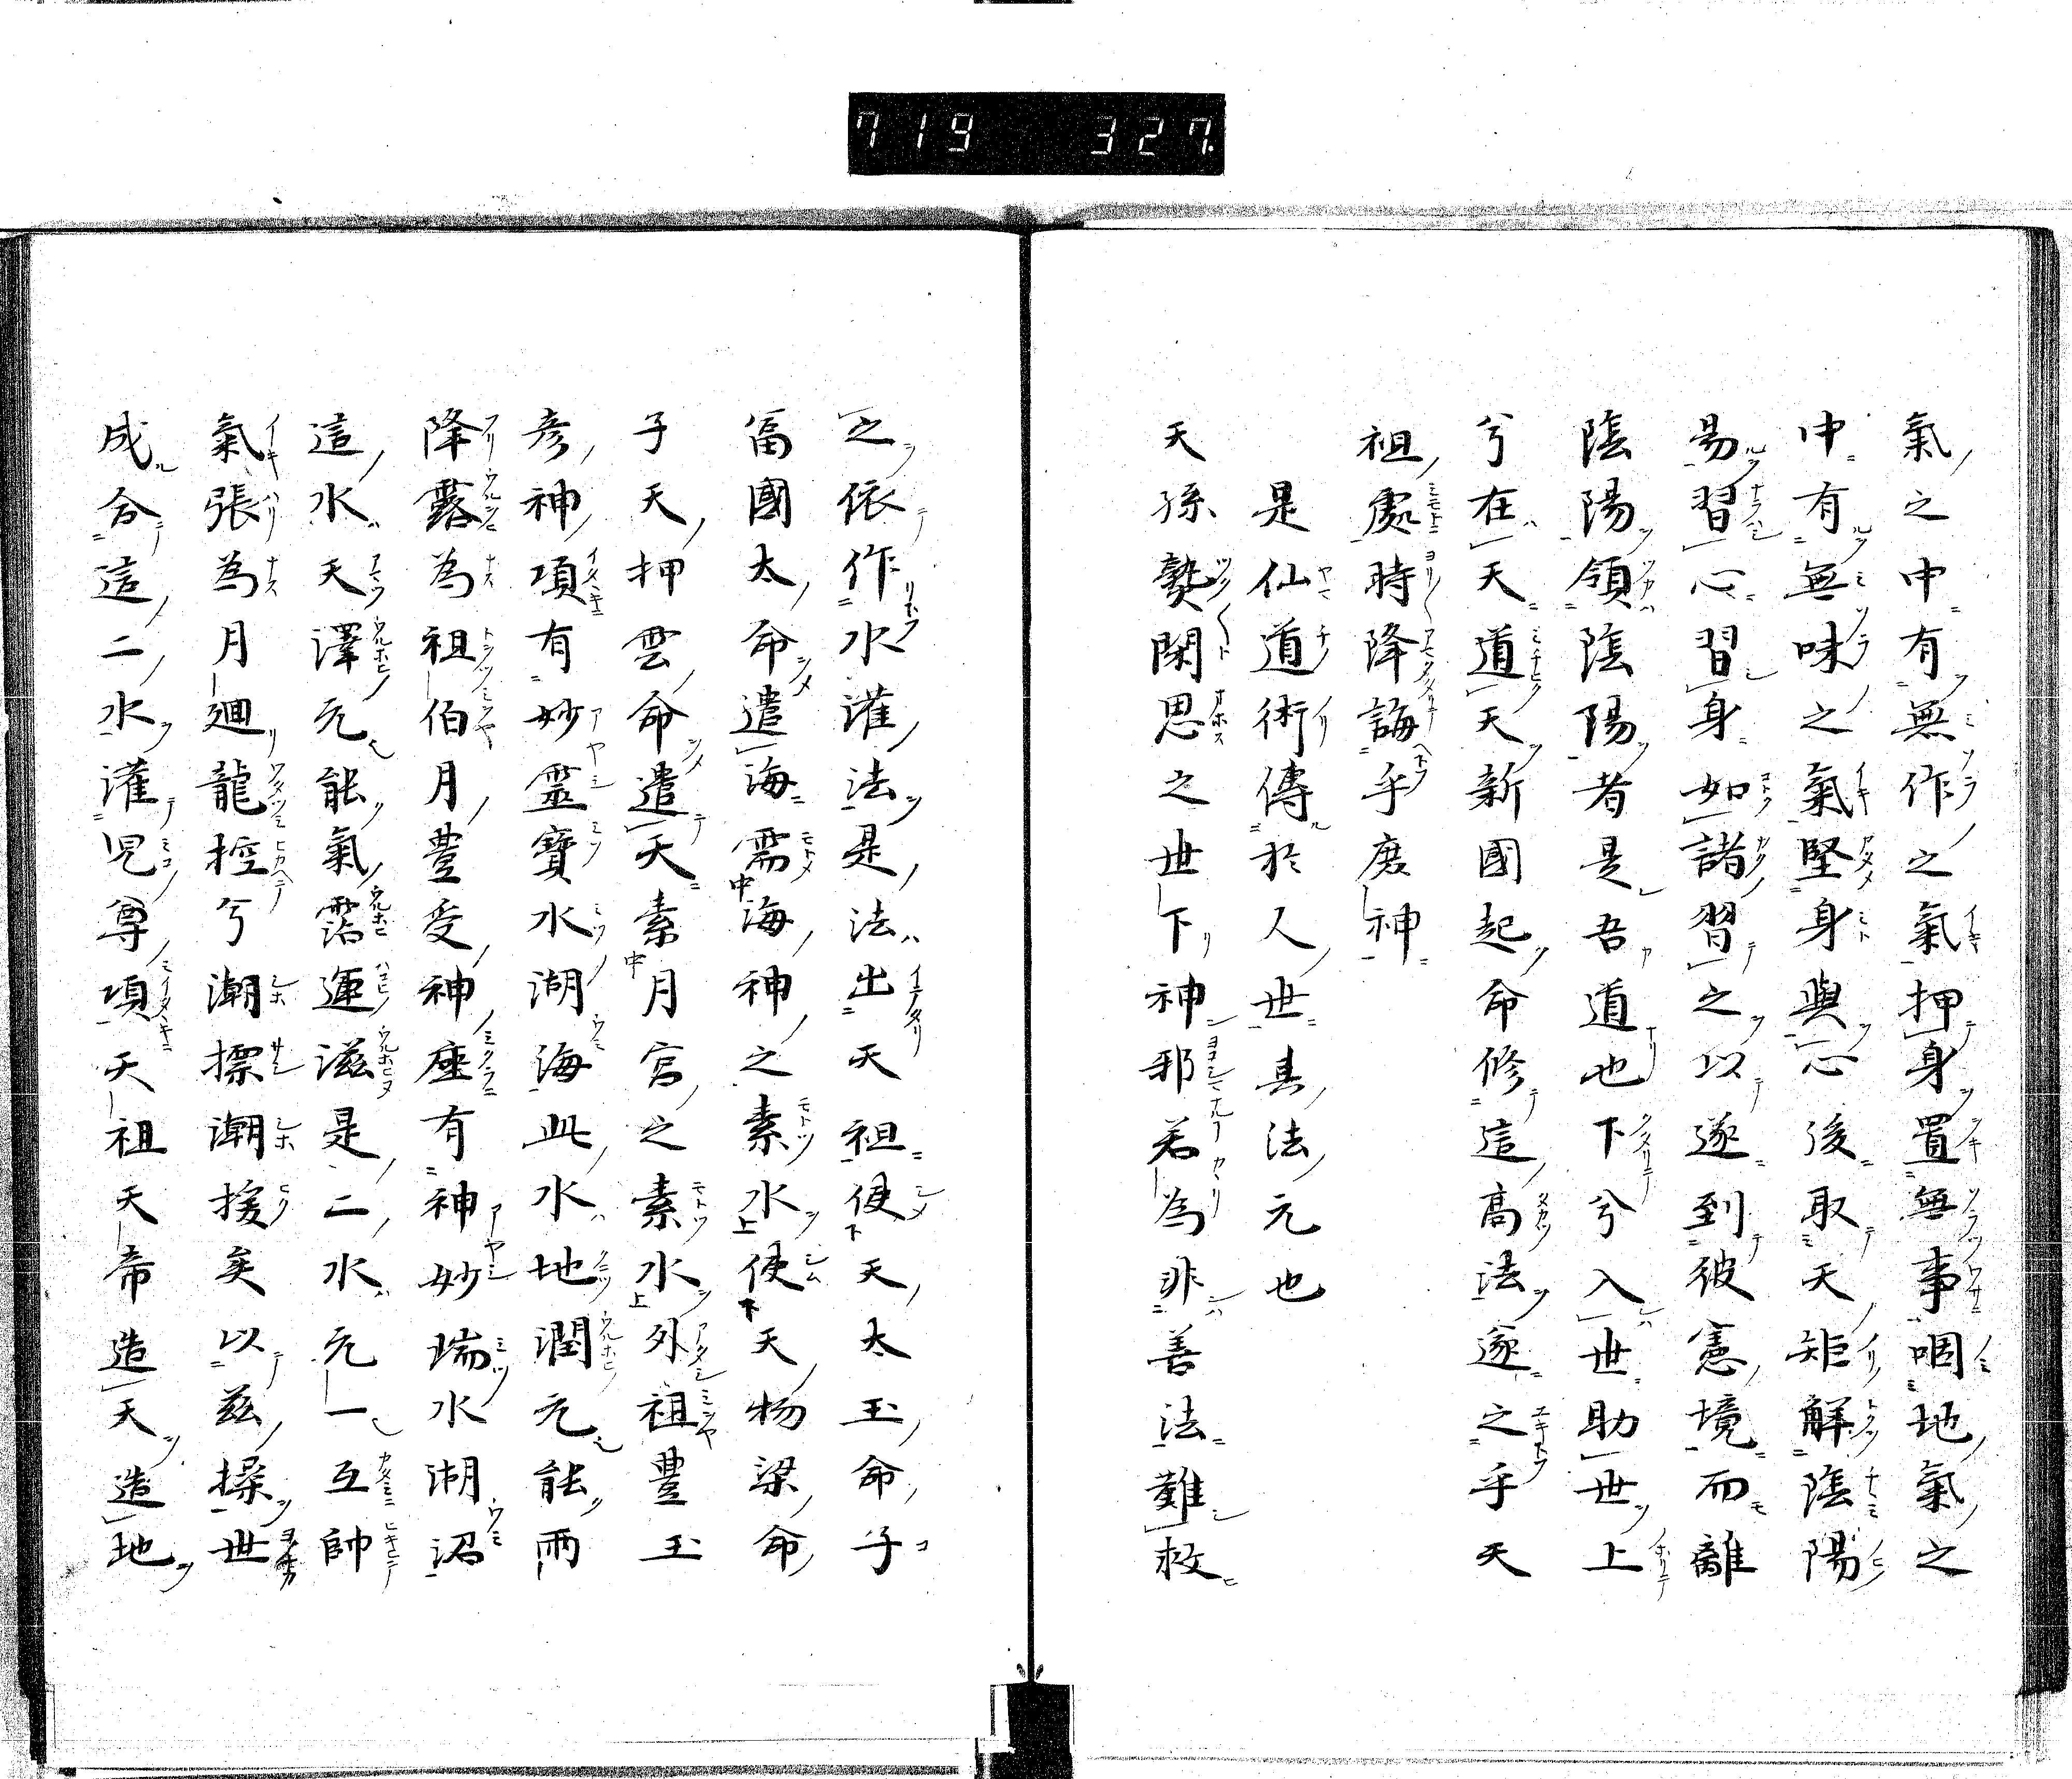 719 327
氣之中有無作之氣押身置無事咽地氣之
中有無味之氣堅身與心後取天矩解陰陽
易習心習身如諸習之以遂到彼憲境而離
陰陽領陰陽者是吾道也下兮入世助世上
兮在天道天新國起命修這高法遂之乎天
祖處時降誨乎度神
是仙道術傳於人世具法元也
天孫熟閑思之世下神邪若為非善法難救
之依作水灌法是法出天祖使天太玉命子
富國太命遣海需海神之素水使天物梁命
子天押雲命遣天素月宮之素水外祖豐玉
彥神項有妙靈寶水湖海此水地潤元能兩
降露為祖伯月豐受神座有神妙瑞水湖沼
這水天澤元能氣霑運滋是二水元一互帥
氣張為月廻龍控兮潮標潮援矣以茲操世
成合這二水灌児尊項天祖天帝造天造地